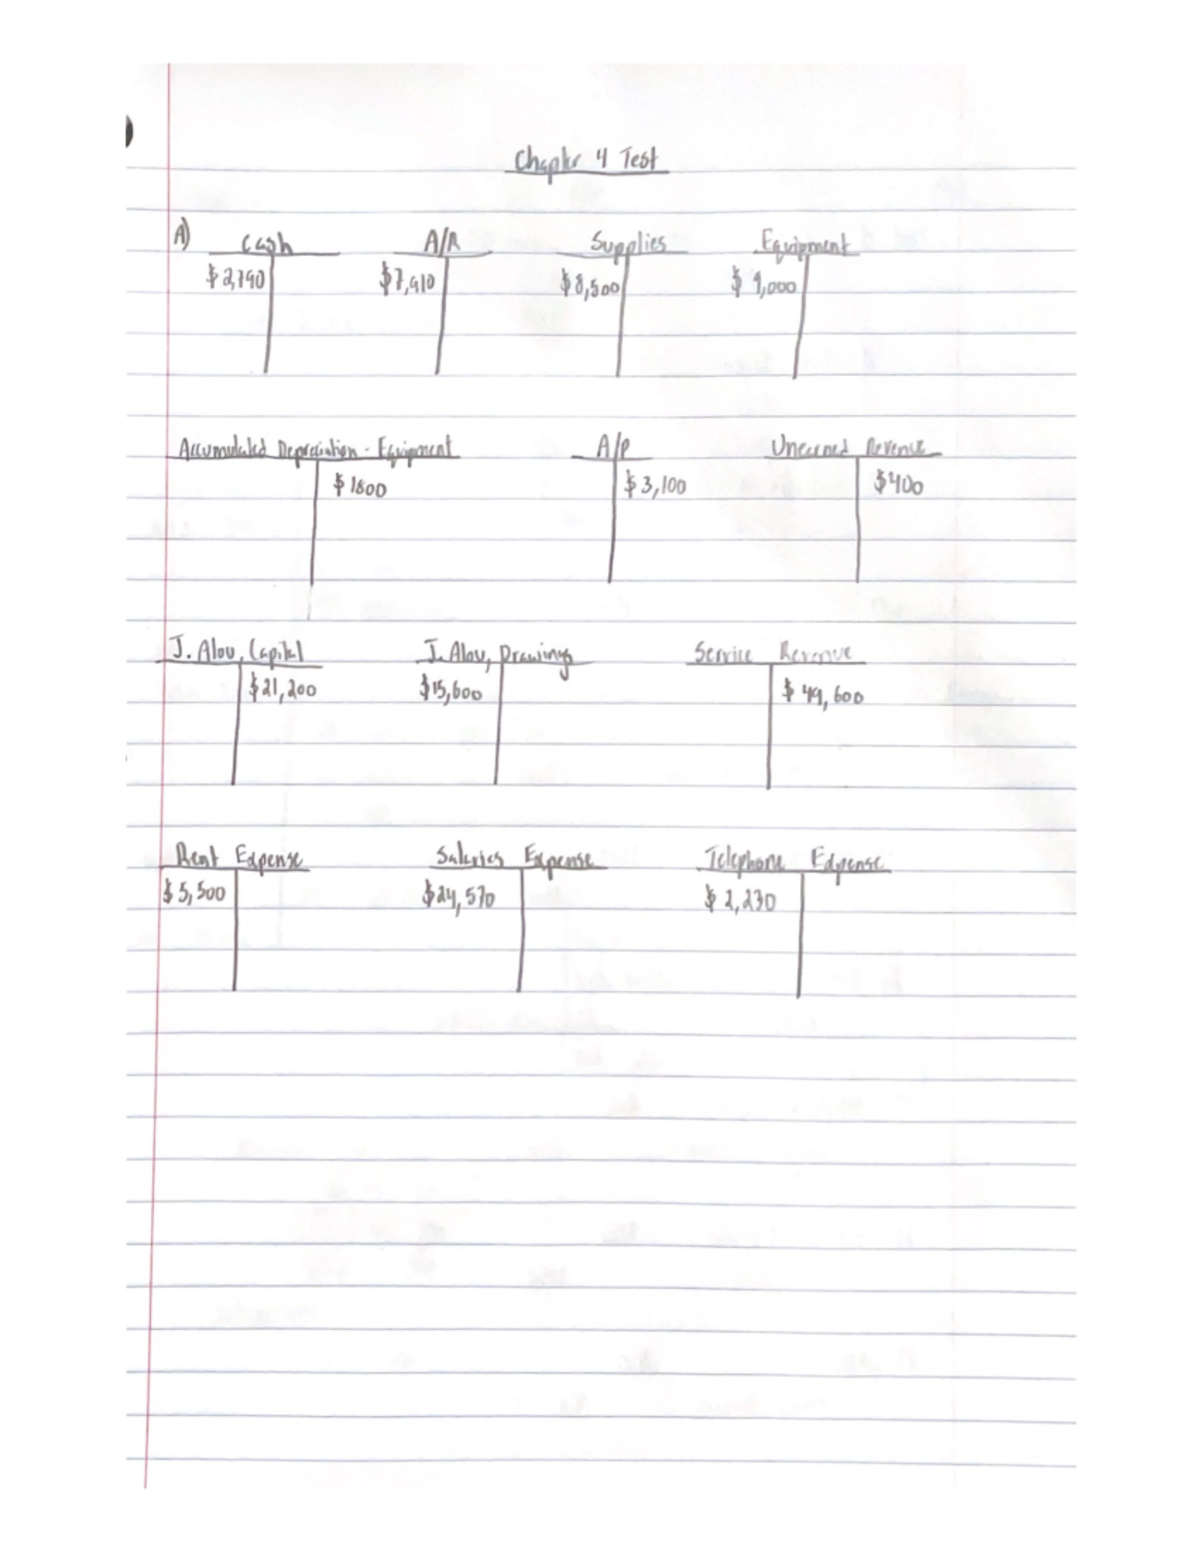 Chapter 4 Test
A) Cash A/R Supplies Equipment
$2,790 $7,910 $8,500 $9,000
Accumulated Depreciation - Equipment A/P Unearned Revenue
$1800 $3,100 $400
J. Alou, Capital J. Alou, Drawings Service Revenue
$21,200 $15,600 $49,600
Rent Expense Salaries Expense Telephone Expense
$5,500 $24,570 $2,230